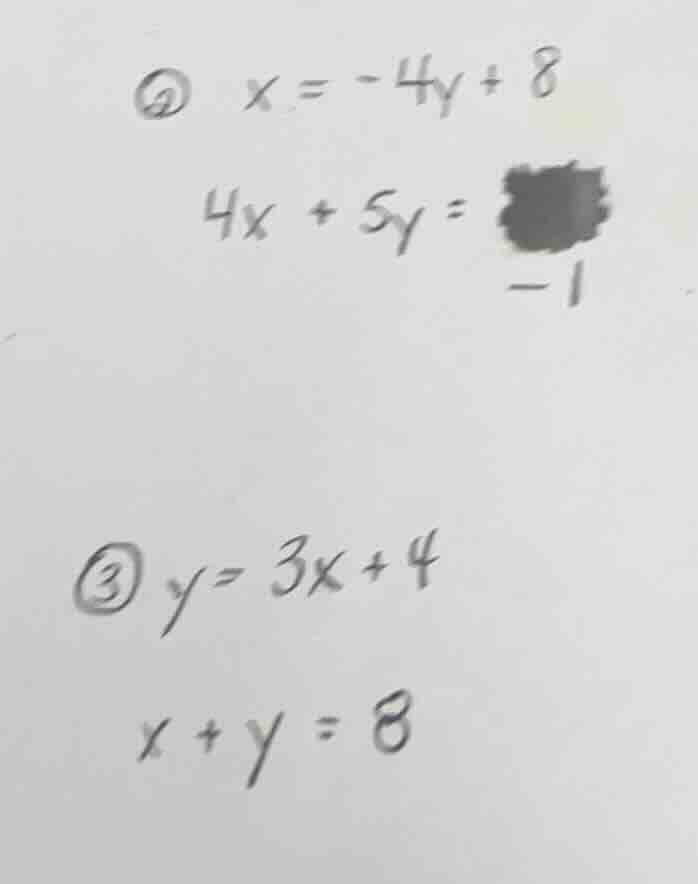 ② x = -4y + 8
4x + 5y =
-1
③ y = 3x + 4
x + y = 8